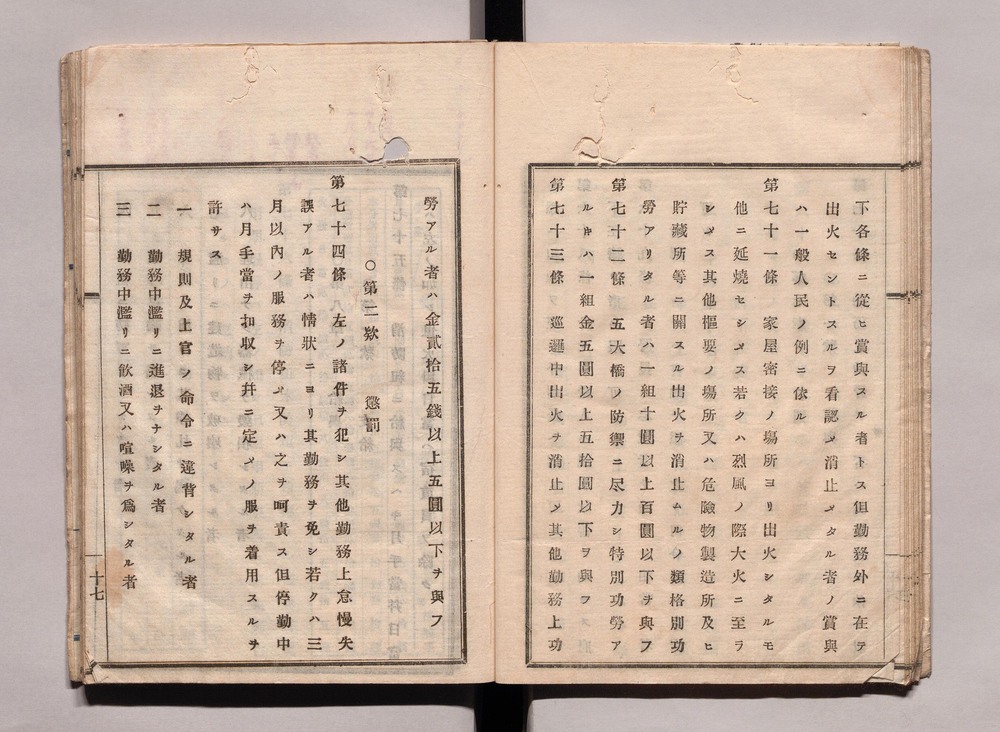 下各條ニ從ヒ賞與スル者トス但勤務外ニ在テ
出火セントスルヲ看認メ消止メタル者ノ賞與
ハ一般人民ノ例ニ依ル
第七十一條 家屋密接ノ塲所ヨリ出火シタルモ
他ニ延燒セシメス若クハ烈風ノ際大火ニ至ラ
シメス其他樞要ノ塲所又ハ危險物製造所及ヒ
貯藏所等ニ關スル出火ヲ消止ムルノ類格別功
勞アリタル者ハ一組十圓以上百圓以下ヲ與フ
第七十二條 五大橋ノ防禦ニ尽力シ特別功勞ア
ルキハ一組金五圓以上五拾圓以下ヲ與フ
第七十三條 巡邏中出火ヲ消止メ其他勤務上功
勞アル者ハ金貳拾五錢以上五圓以下ヲ與フ
○第二欵 懲罰
第七十四條 左ノ諸件ヲ犯シ其他勤務上怠慢失
誤アル者ハ情狀ニヨリ其勤務ヲ免シ若クハ三
月以內ノ服務ヲ停メ又ハ之ヲ呵責ス但停勤中
ハ月手當ヲ扣收シ幷ニ定メノ服ヲ着用スルヲ
許サス
一 規則及上官ノ命令ニ違背シタル者
二 勤務中濫リニ進退ヲナシタル者
三 勤務中濫リニ飮酒又ハ喧噪ヲ爲シタル者
十七